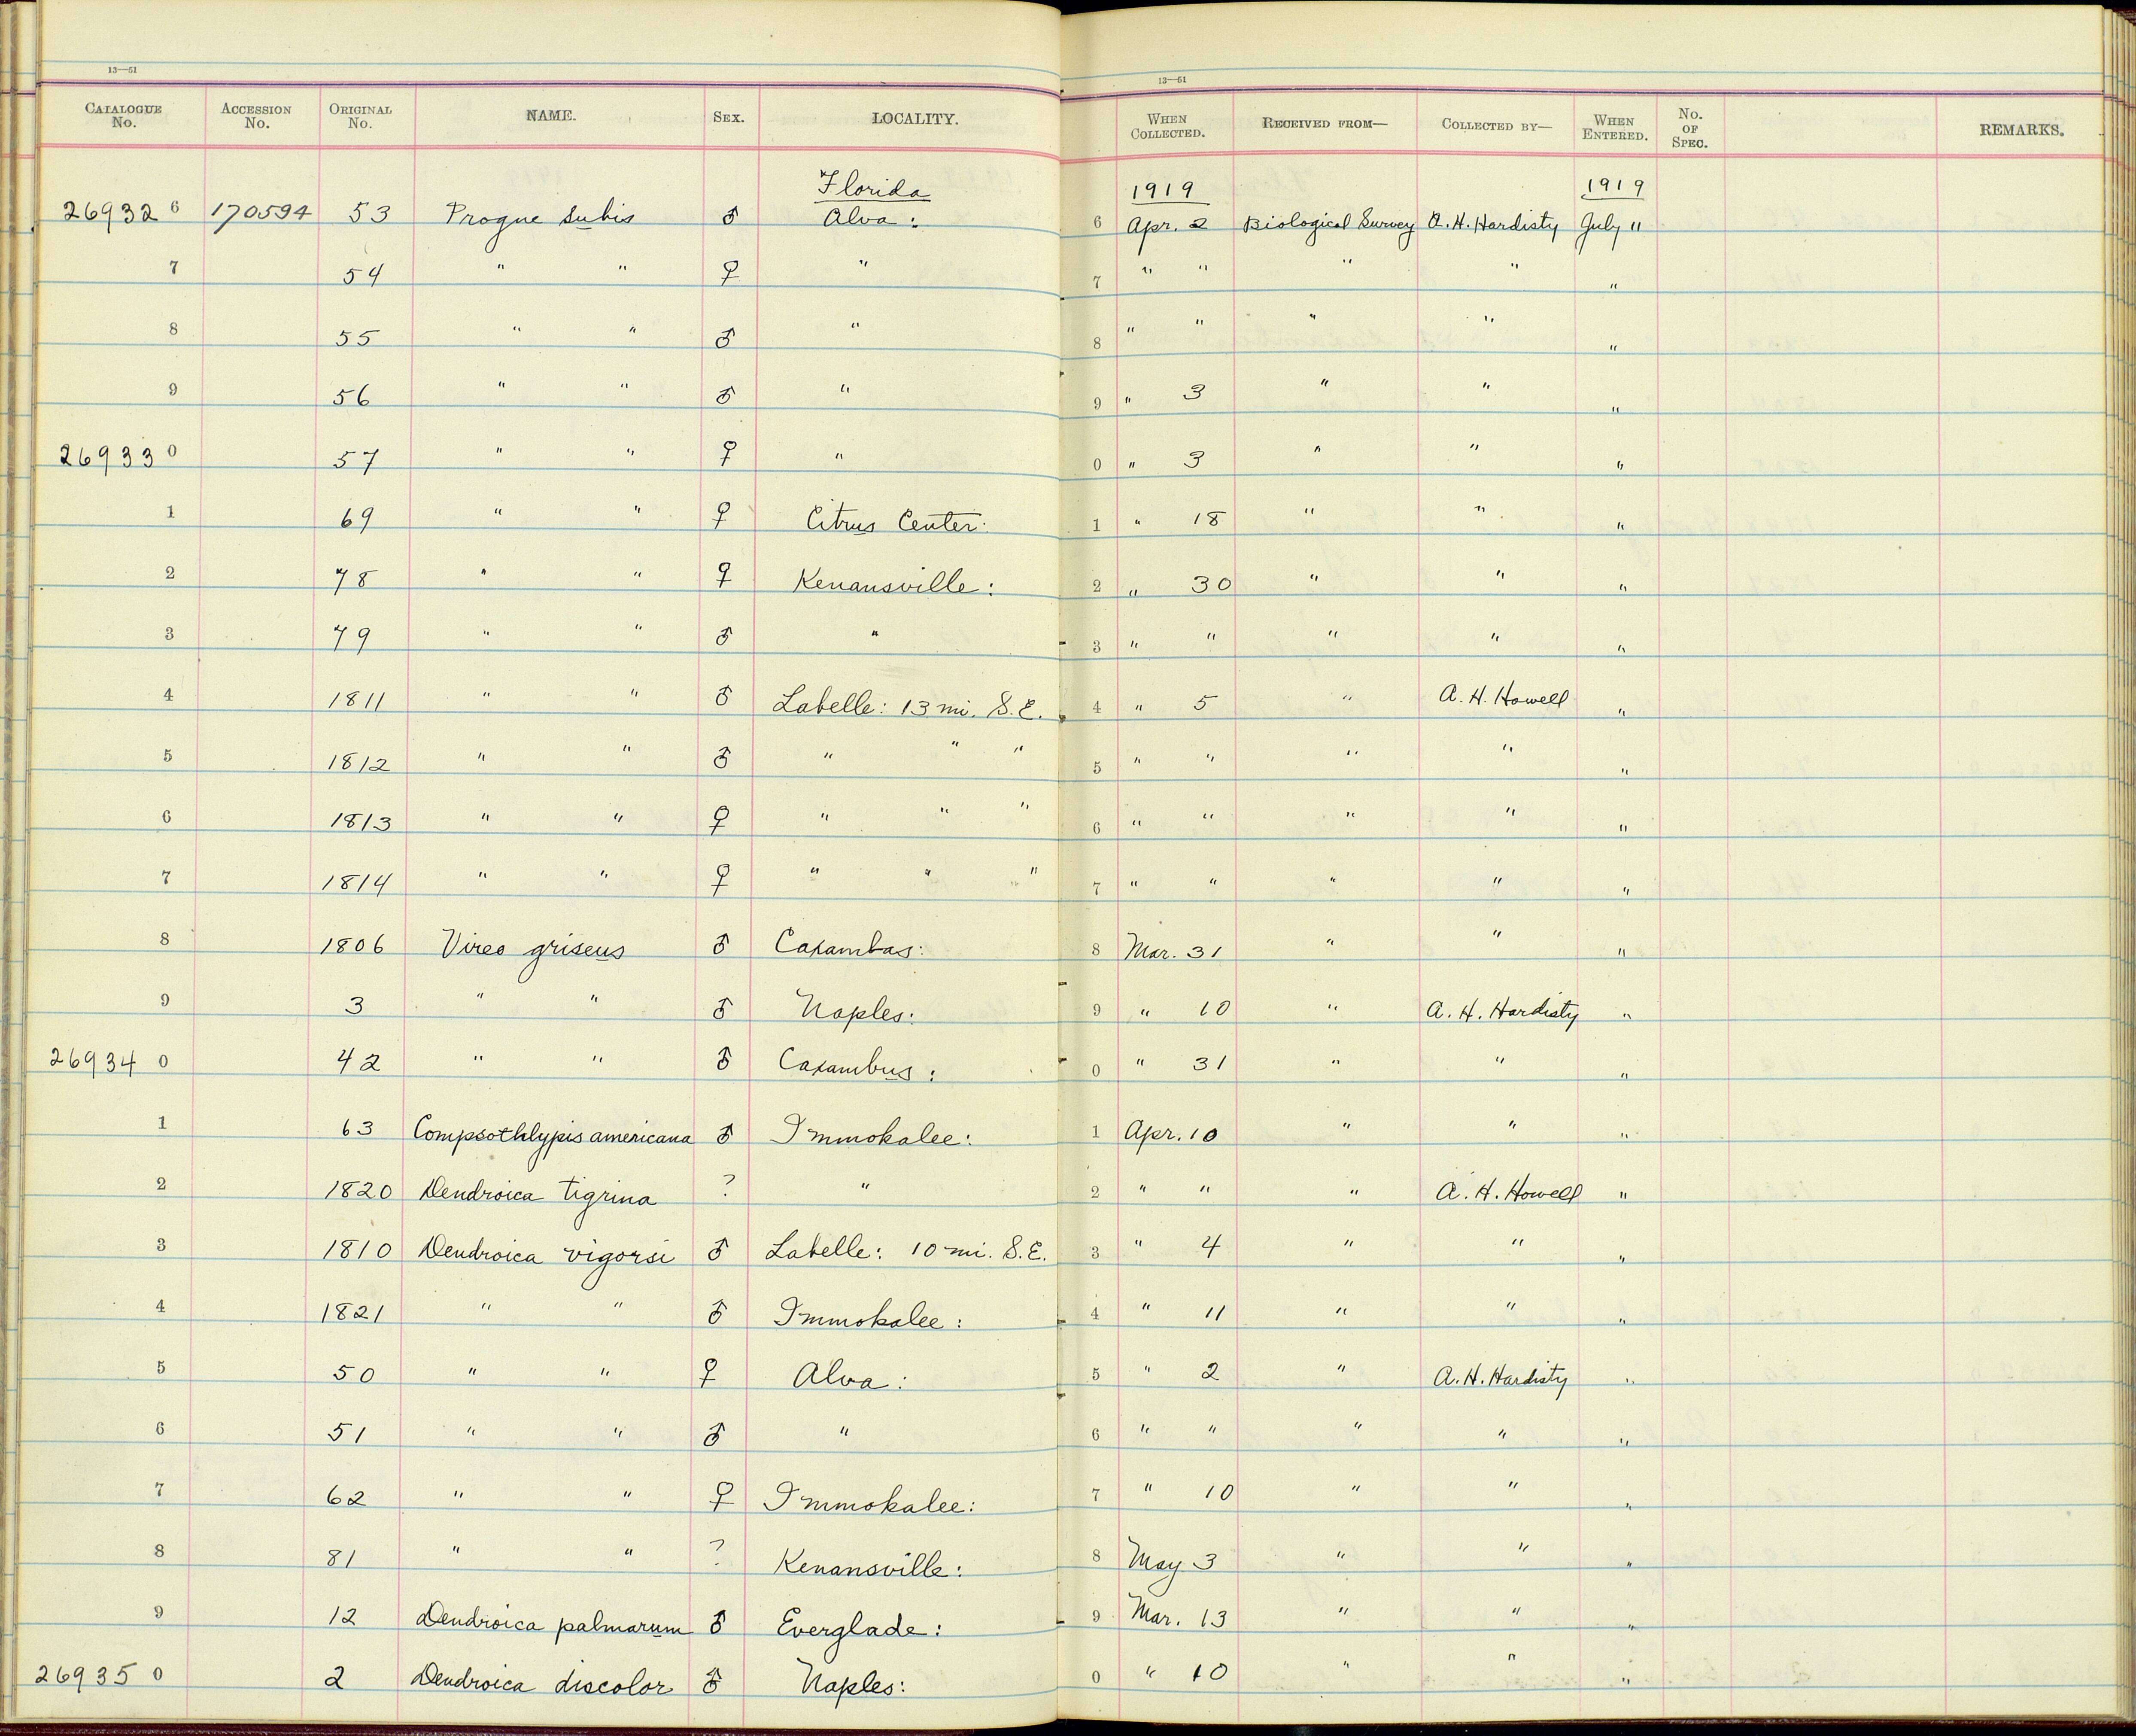 13—51
13—51
CATALOGUE No. ACCESSION No. ORIGINAL No. NAME. SEX. LOCALITY. WHEN COLLECTED. RECEIVED FROM— COLLECTED BY— WHEN ENTERED. No. OF SPEC. REMARKS.
Florida 1919 1919
26932 6 170594 53 Progne subis ♂ Alva: 6 Apr. 2 Biological Survey A. H. Hardisty July 11
7 54 " " ♀ " 7 " " " " "
8 55 " " ♂ " 8 " " " " "
9 56 " " ♂ " 9 " 3 " " "
26933 0 57 " " ♀ " 0 " 3 " " "
1 69 " " ♀ Citrus Center: 1 " 18 " " "
2 78 " " ♀ Kenansville: 2 " 30 " " "
3 79 " " ♂ " 3 " " " " "
4 1811 " " ♂ Labelle: 13 mi. S.E. 4 " 5 " A. H. Howell "
5 1812 " " ♂ " " " 5 " " " " "
6 1813 " " ♀ " " " 6 " " " " "
7 1814 " " ♀ " " " 7 " " " " "
8 1806 Vireo griseus ♂ Caxambas: 8 Mar. 31 " " "
9 3 " " ♂ Naples: 9 " 10 " A. H. Hardisty "
26934 0 42 " " ♂ Caxambus: 0 " 31 " " "
1 63 Compsothlypis americana ♂ Immokalee: 1 Apr. 10 " " "
2 1820 Dendroica tigrina ? " 2 " " " A. H. Howell "
3 1810 Dendroica vigorsi ♂ Labelle: 10 mi. S.E. 3 " 4 " " "
4 1821 " " ♂ Immokalee: 4 " 11 " " "
5 50 " " ♀ Alva: 5 " 2 " A. H. Hardisty "
6 51 " " ♂ " 6 " " " " "
7 62 " " ♀ Immokalee: 7 " 10 " " "
8 81 " " ? Kenansville: 8 May 3 " " "
9 12 Dendroica palmarum ♂ Everglade: 9 Mar. 13 " " "
26935 0 2 Dendroica discolor ♂ Naples: 0 " 10 " " "